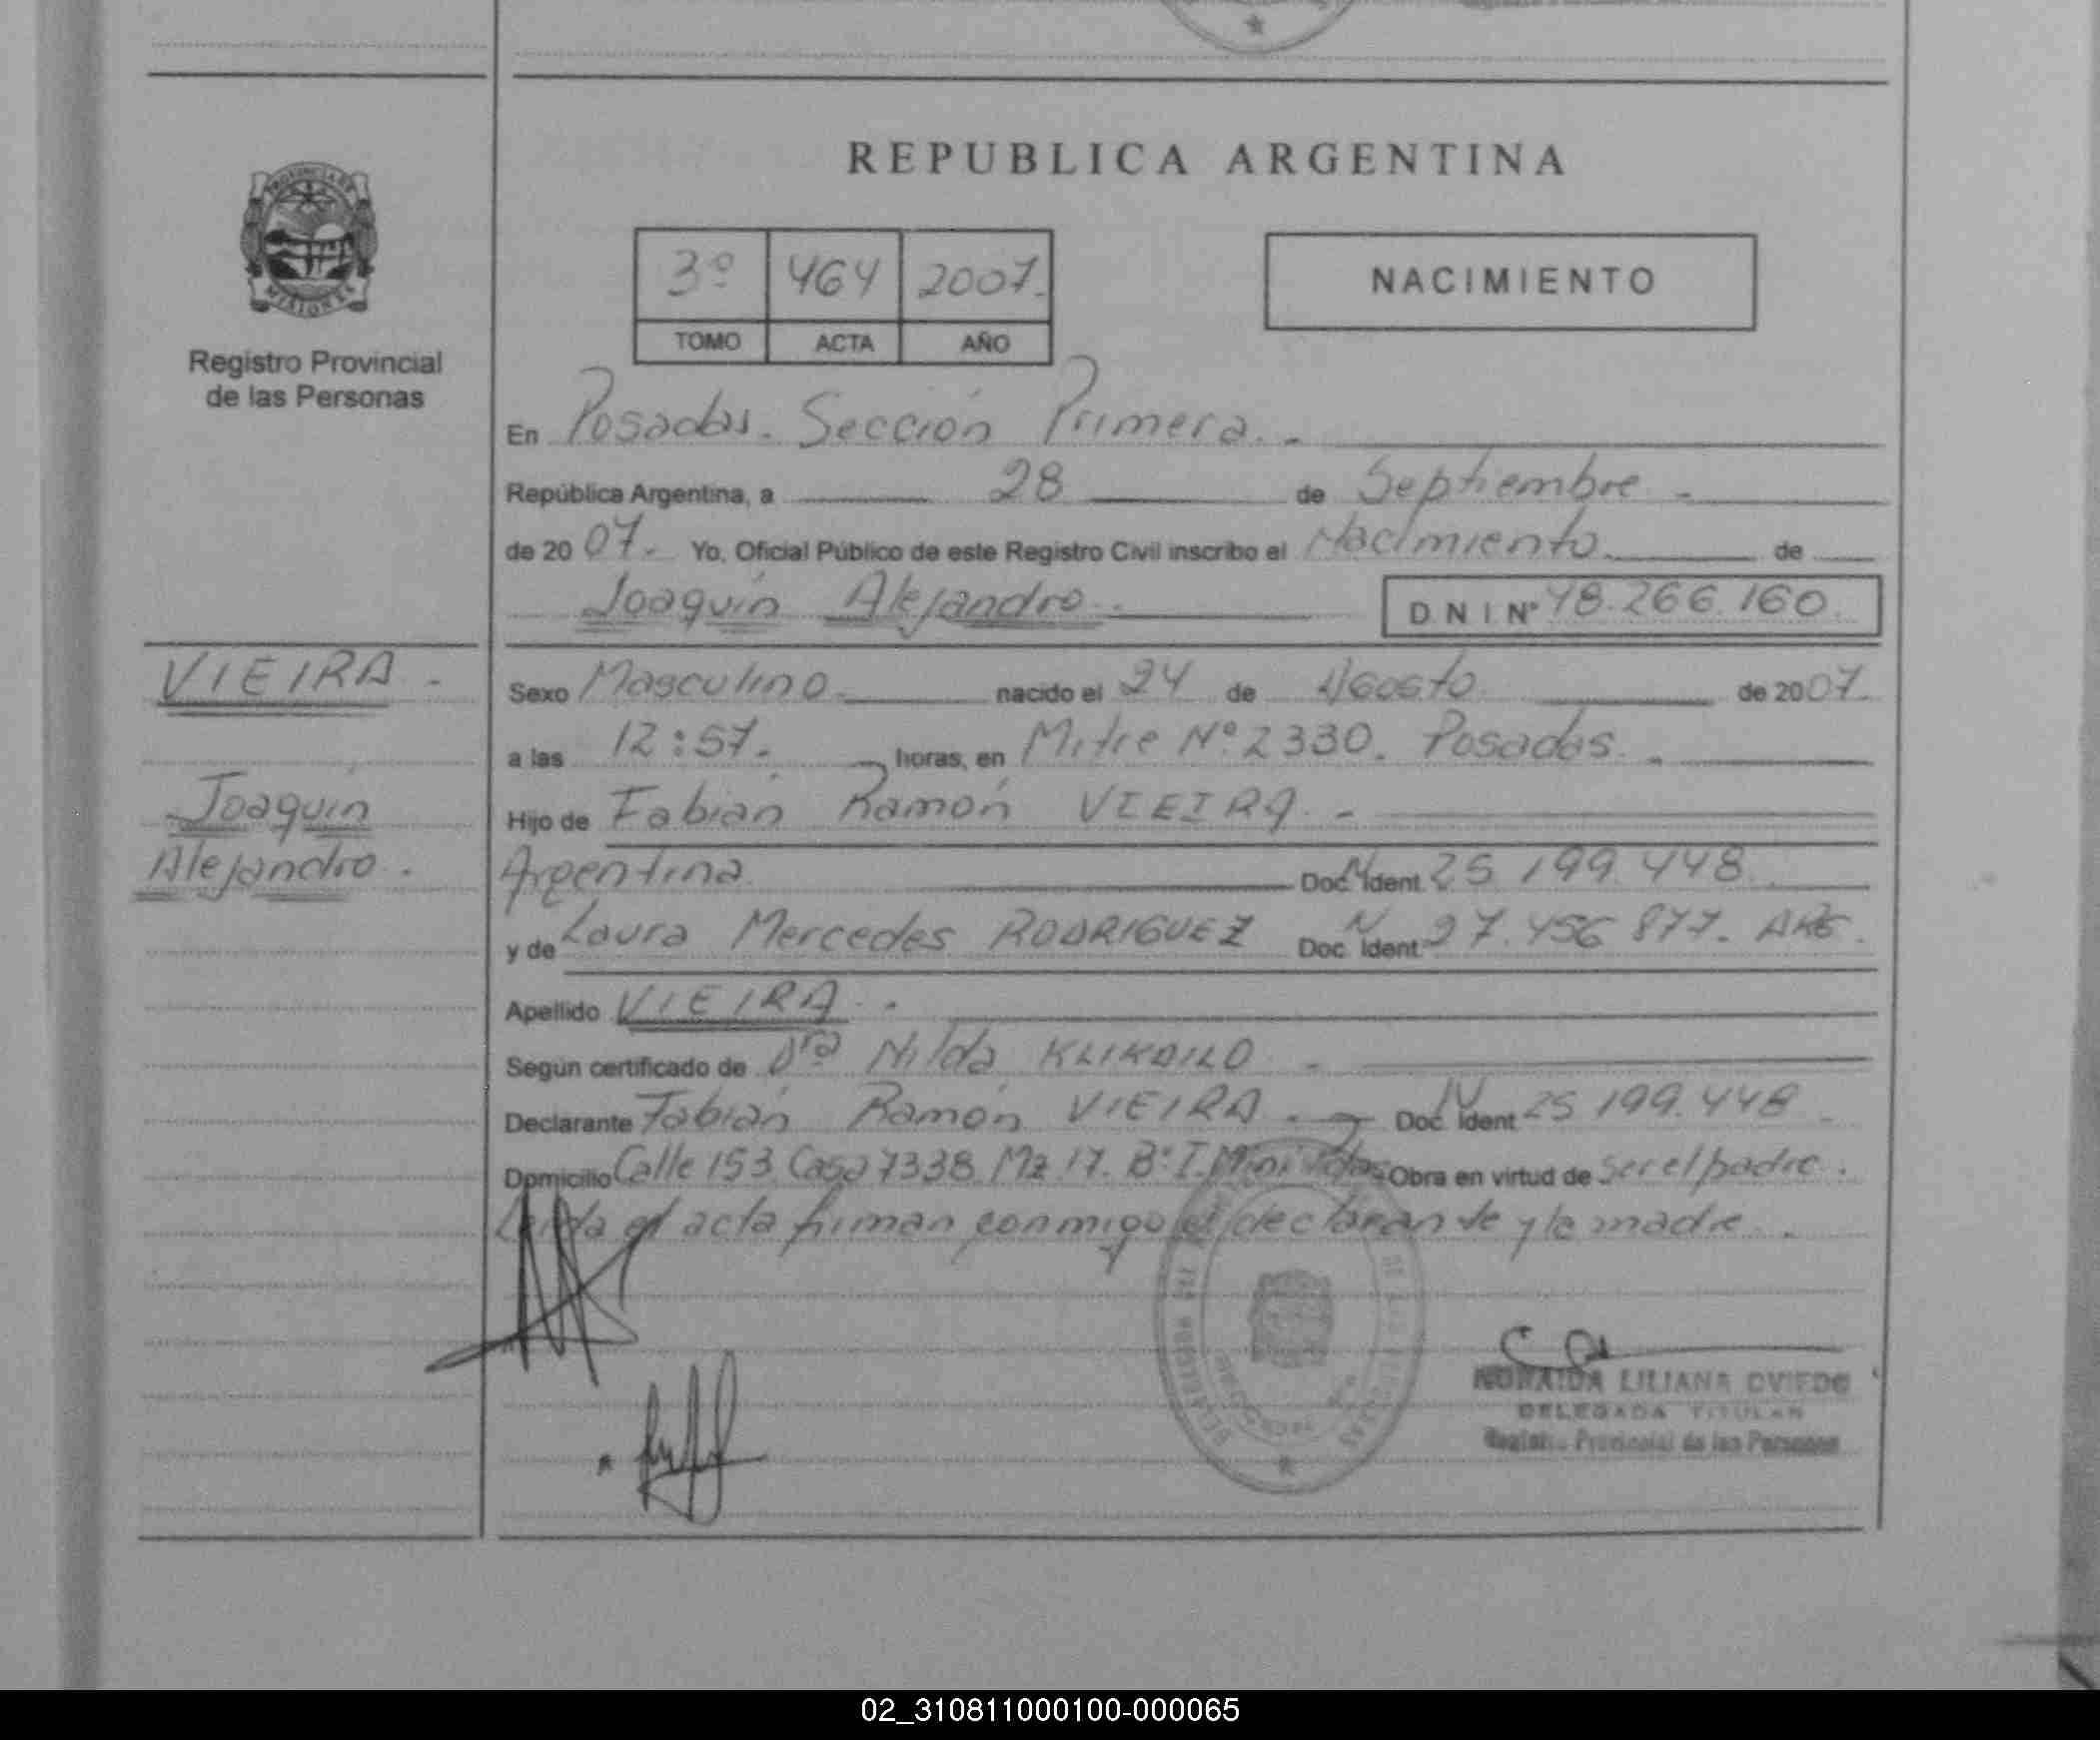 REPUBLICA ARGENTINA
PROVINCIA DE
MISIONES
Registro Provincial
de las Personas
3º 464 2007.
TOMO ACTA AÑO
NACIMIENTO
En Posadas. Sección Primera. -
República Argentina, a 28 de Septiembre -
de 20 07. Yo, Oficial Público de este Registro Civil inscribo el Nacimiento de
Joaquín Alejandro. D N I Nº 48.266.160
VIEIRA -
Joaquín
Alejandro.
Sexo Masculino nacido el 24 de Agosto de 20 07.
a las 12:57. horas, en Mitre Nº 2330. Posadas. -
Hijo de Fabián Ramón VIEIRA. -
Argentina Doc. Ident. N 25.199.448
y de Laura Mercedes RODRIGUEZ Doc. Ident. N 27.456.877. ARG.
Apellido VIEIRA.
Según certificado de Dra Nilda -
Declarante Fabián Ramón VIEIRA. - Doc. Ident. N 25.199.448
Domicilio Calle 153 Casa 7338 Mz 17. Bº I. Mini Obra en virtud de ser el padre.
Leída el acta firman conmigo el declarante y la madre.
NORAIDA LILIANA OVIEDO
DELEGADA TITULAR
Registro Provincial de las Personas
02_310811000100-000065